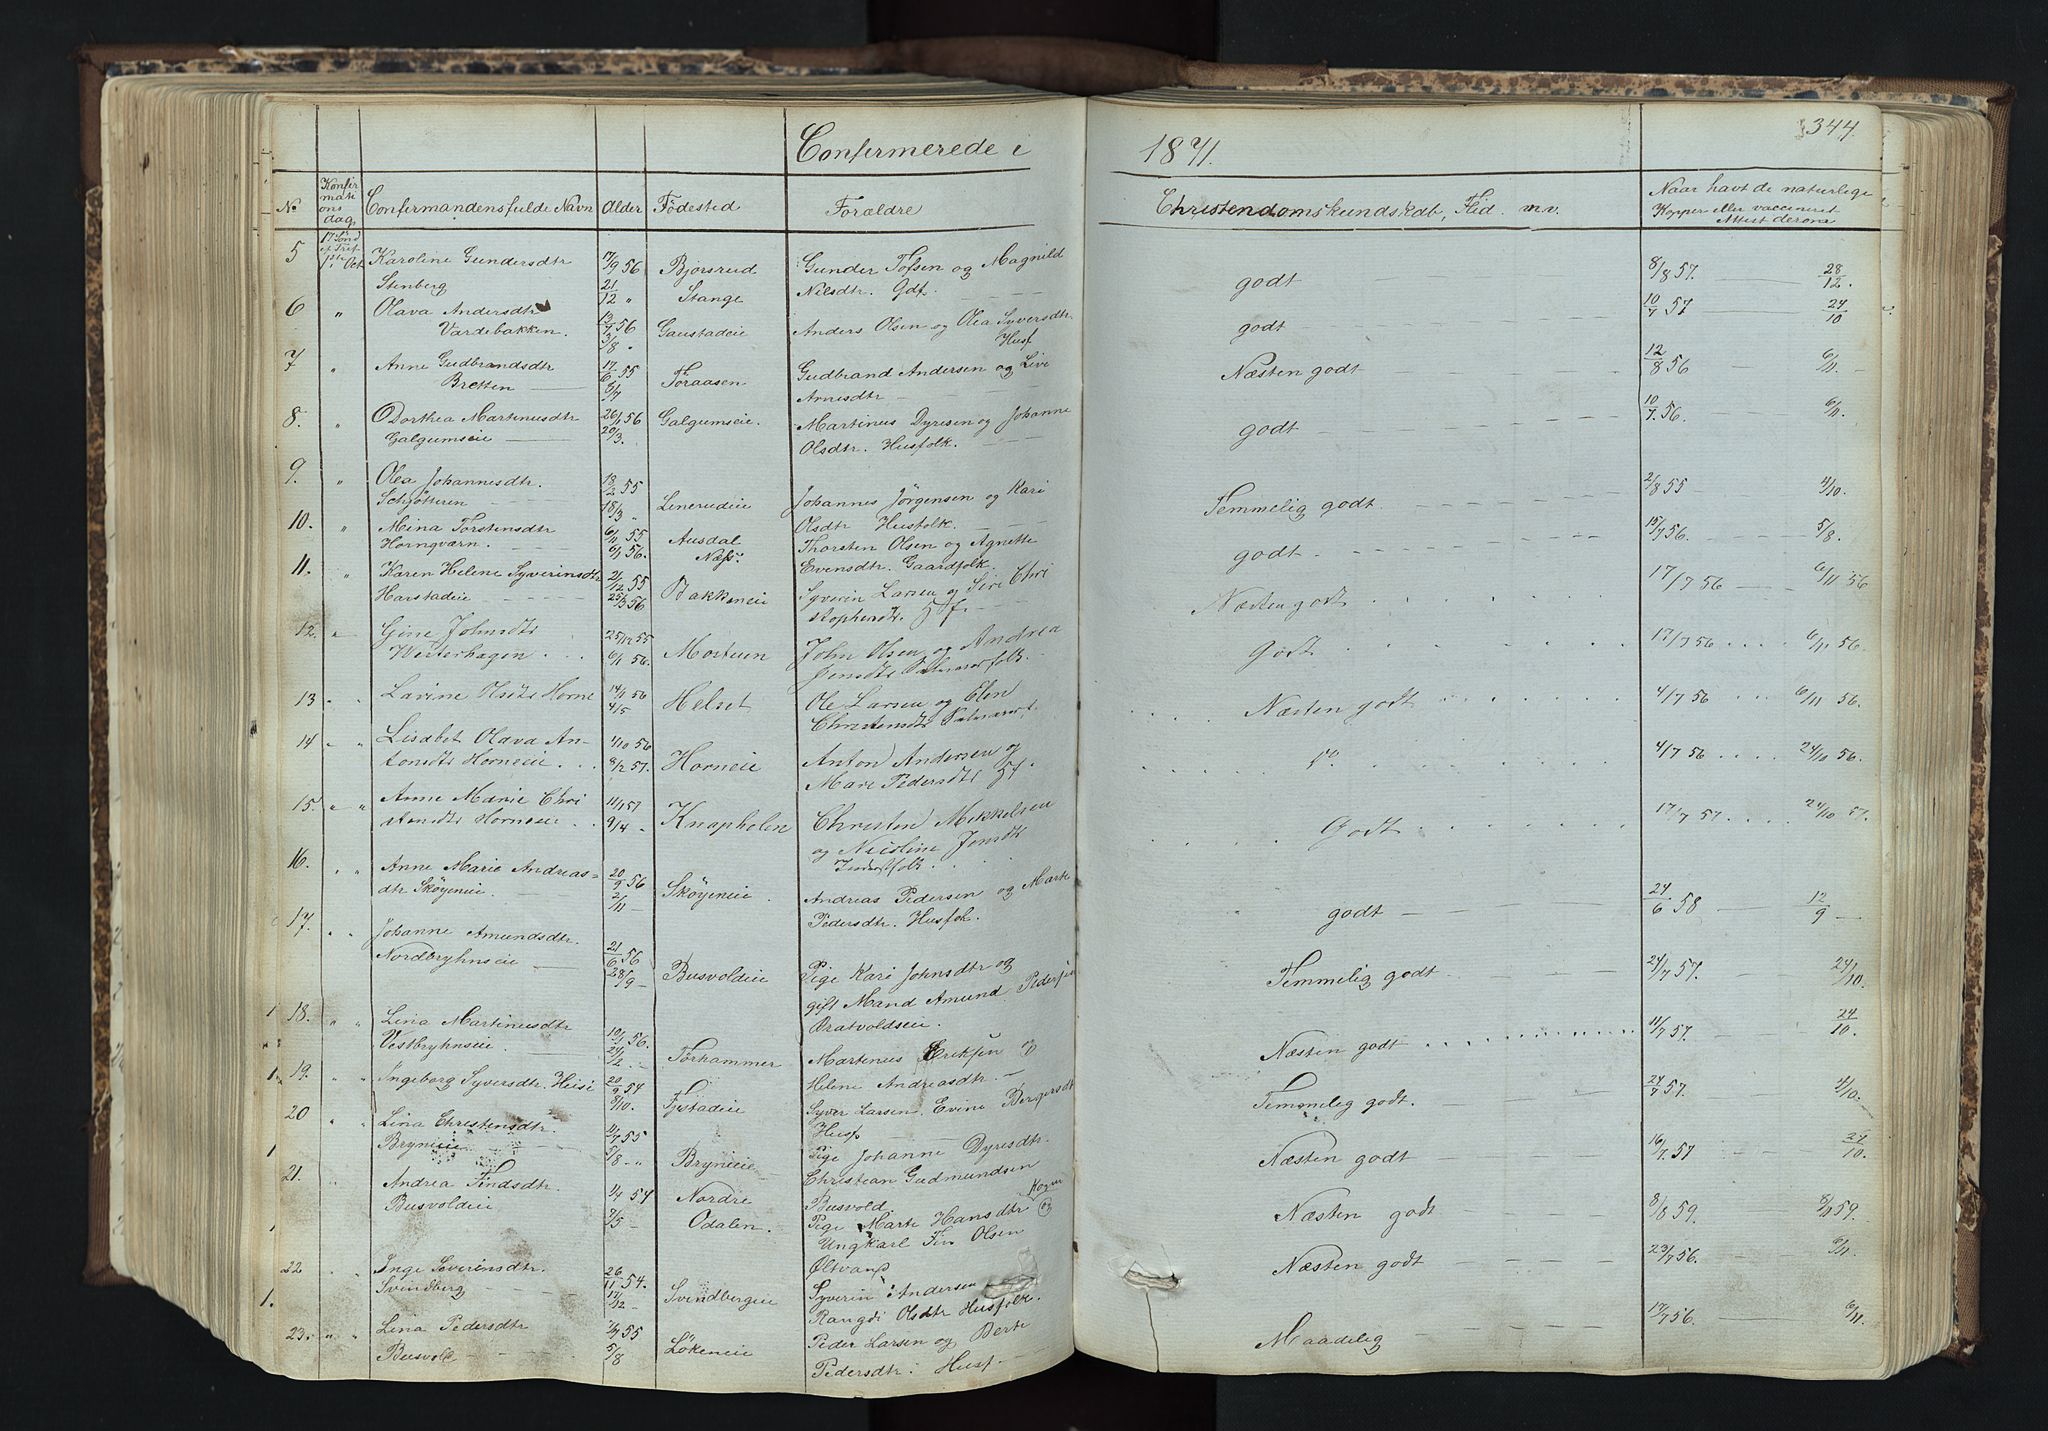 Confirmerede i 1871.
344.
No Konfirmationsdag Confirmandens fulde Navn Alder Födested Forældre Christendomskundskab, Flid m.v. Naar havt de naturlige Kopper eller vaccineret Attest derom
5 17 Sönd. e. Tref. 1ste Oct. Karoline Gundersdtr 17/9 56 Bjorsrud Gunder Tofsen og Magnild godt 8/8 57. 28/12.
Stenberg 21/12 " Stange Nilsdtr. Gdf.
6 " Olava Andersdtr 13/7 56 Gaustadeie Anders Olsen og Olea Syversdtr. godt 10/7 57 24/10
Vardebakken. 3/8 " Husf
7 " Anne Gudbrandsdtr 17/6 55 Toraasen Gudbrand Andersen og Live Næsten godt 12/8 56 6/11
Bretten 5/7 Arnesdtr
8. " Dorthea Martinusdtr 26/1 56 Galgumseie. Martinus Dyresen og Johanne godt 10/7. 56. 6/11
Galgumseie 20/3. Olsdtr. Husfolk.
9. " Olea Johannesdtr. 18/2 55 Linerudeie Johannes Jörgensen og Kari Temmelig godt. 2/8 55 4/10.
Schjötteren 18/3 " Olsdtr Husfolk.
10. " Mina Torstensdtr 6/11 55 Ausdal Thorsten Olsen og Agnette godt. 15/7 56. 5/8.
Horngværn. 6/1 56. Næss. Evensdtr. Gaardfolk.
11. " Karen Helene Syverinsdtr 2/12 55 Bakkeneie Syverin Larsen og Siri Chri Næsten godt 17/7 56 6/11 56
Harstadeie 25/3 56 stophersdtr. Hf.
12. " Gine Johnsdtr 25/12 55 Mostuen John Olsen og Andrea Godt 17/7 56 6/11 56.
Westerhagen 6/1 56. Jensdtr
13 " " Lavine Olsdtr Horne 14/1 56 Helset Ole Larsen og Elen Næsten godt 4/7 56 6/11 56.
4/5 Christensdtr
14 " " Lisabet Olava An- 4/10 56 Horneie Anton Andersen og do 4/7 56 24/10 56.
tonsdtr Horneie 8/2 57. Mari Pedersdtr Hf.
15. " " Anne Marie Chri 11/1 57 Knapholen Christen Mikkelsen Godt 17/7 57 24/10 57.
stensdtr Horneie 9/4 " og Nicoline Jensdtr
Inderstfolk.
16. " " Anne Marie Andreas- 20/9 56 Sköyeneie Andreas Pedersen og Marte godt 24/6 58 12/9
dtr Sköyeneie 2/11 Pedersdtr. Husfolk.
17. " " Johanne Amundsdtr. 21/6 56 Busvoldeie Pige Kari Johnsdtr og Temmelig godt 24/7 57. 24/10.
Nordbryhnseie 28/9 gift Mand Amund Pedersen
Bratvoldseie.
1 18. " " Lina Martinusdtr 10/1 56. Torhammer Martinus Eriksen og Næsten godt 11/7 57. 24/10.
Vestbryhnseie 24/2 Helene Andreasdtr.
1. 19. " " Ingeborg Syversdtr. Huse 20/9 54 Fjestadeie Syver Larsen. Evine Bergersdtr Temmelig godt. 24/7 57. 4/10.
8/10. Husf
20 " " Lina Christensdtr. 11/7 55 Brynieie Pige Johanne Dyresdtr. Næsten godt 16/7. 57 24/10.
1 Brynieie 5/8 " Christian Gudmundsen
Busvold.
21. " Andrea Findsdtr. 1/4 54 Nordre Pige Marte Hansdtr og Næsten godt 8/8 59. 8/11 59.
1 Busvoldeie 7/5 Odalen. Ungkarl Fin Olsen
Öltvand
22 " Inge Severinsdtr. 26/11 54. Svindbergeie Syverin Andersen Næsten godt 23/7 56. 6/11.
1. Svindberg 17/12 Rangdi Olsdtr Husfolk.
23. " " Lina Pedersdtr 7/7 55 Lökeneie Peder Larsen og Berte Maadelig 17/7 56. 6/11.
Busvold 5/8 Pedersdtr. Husf.